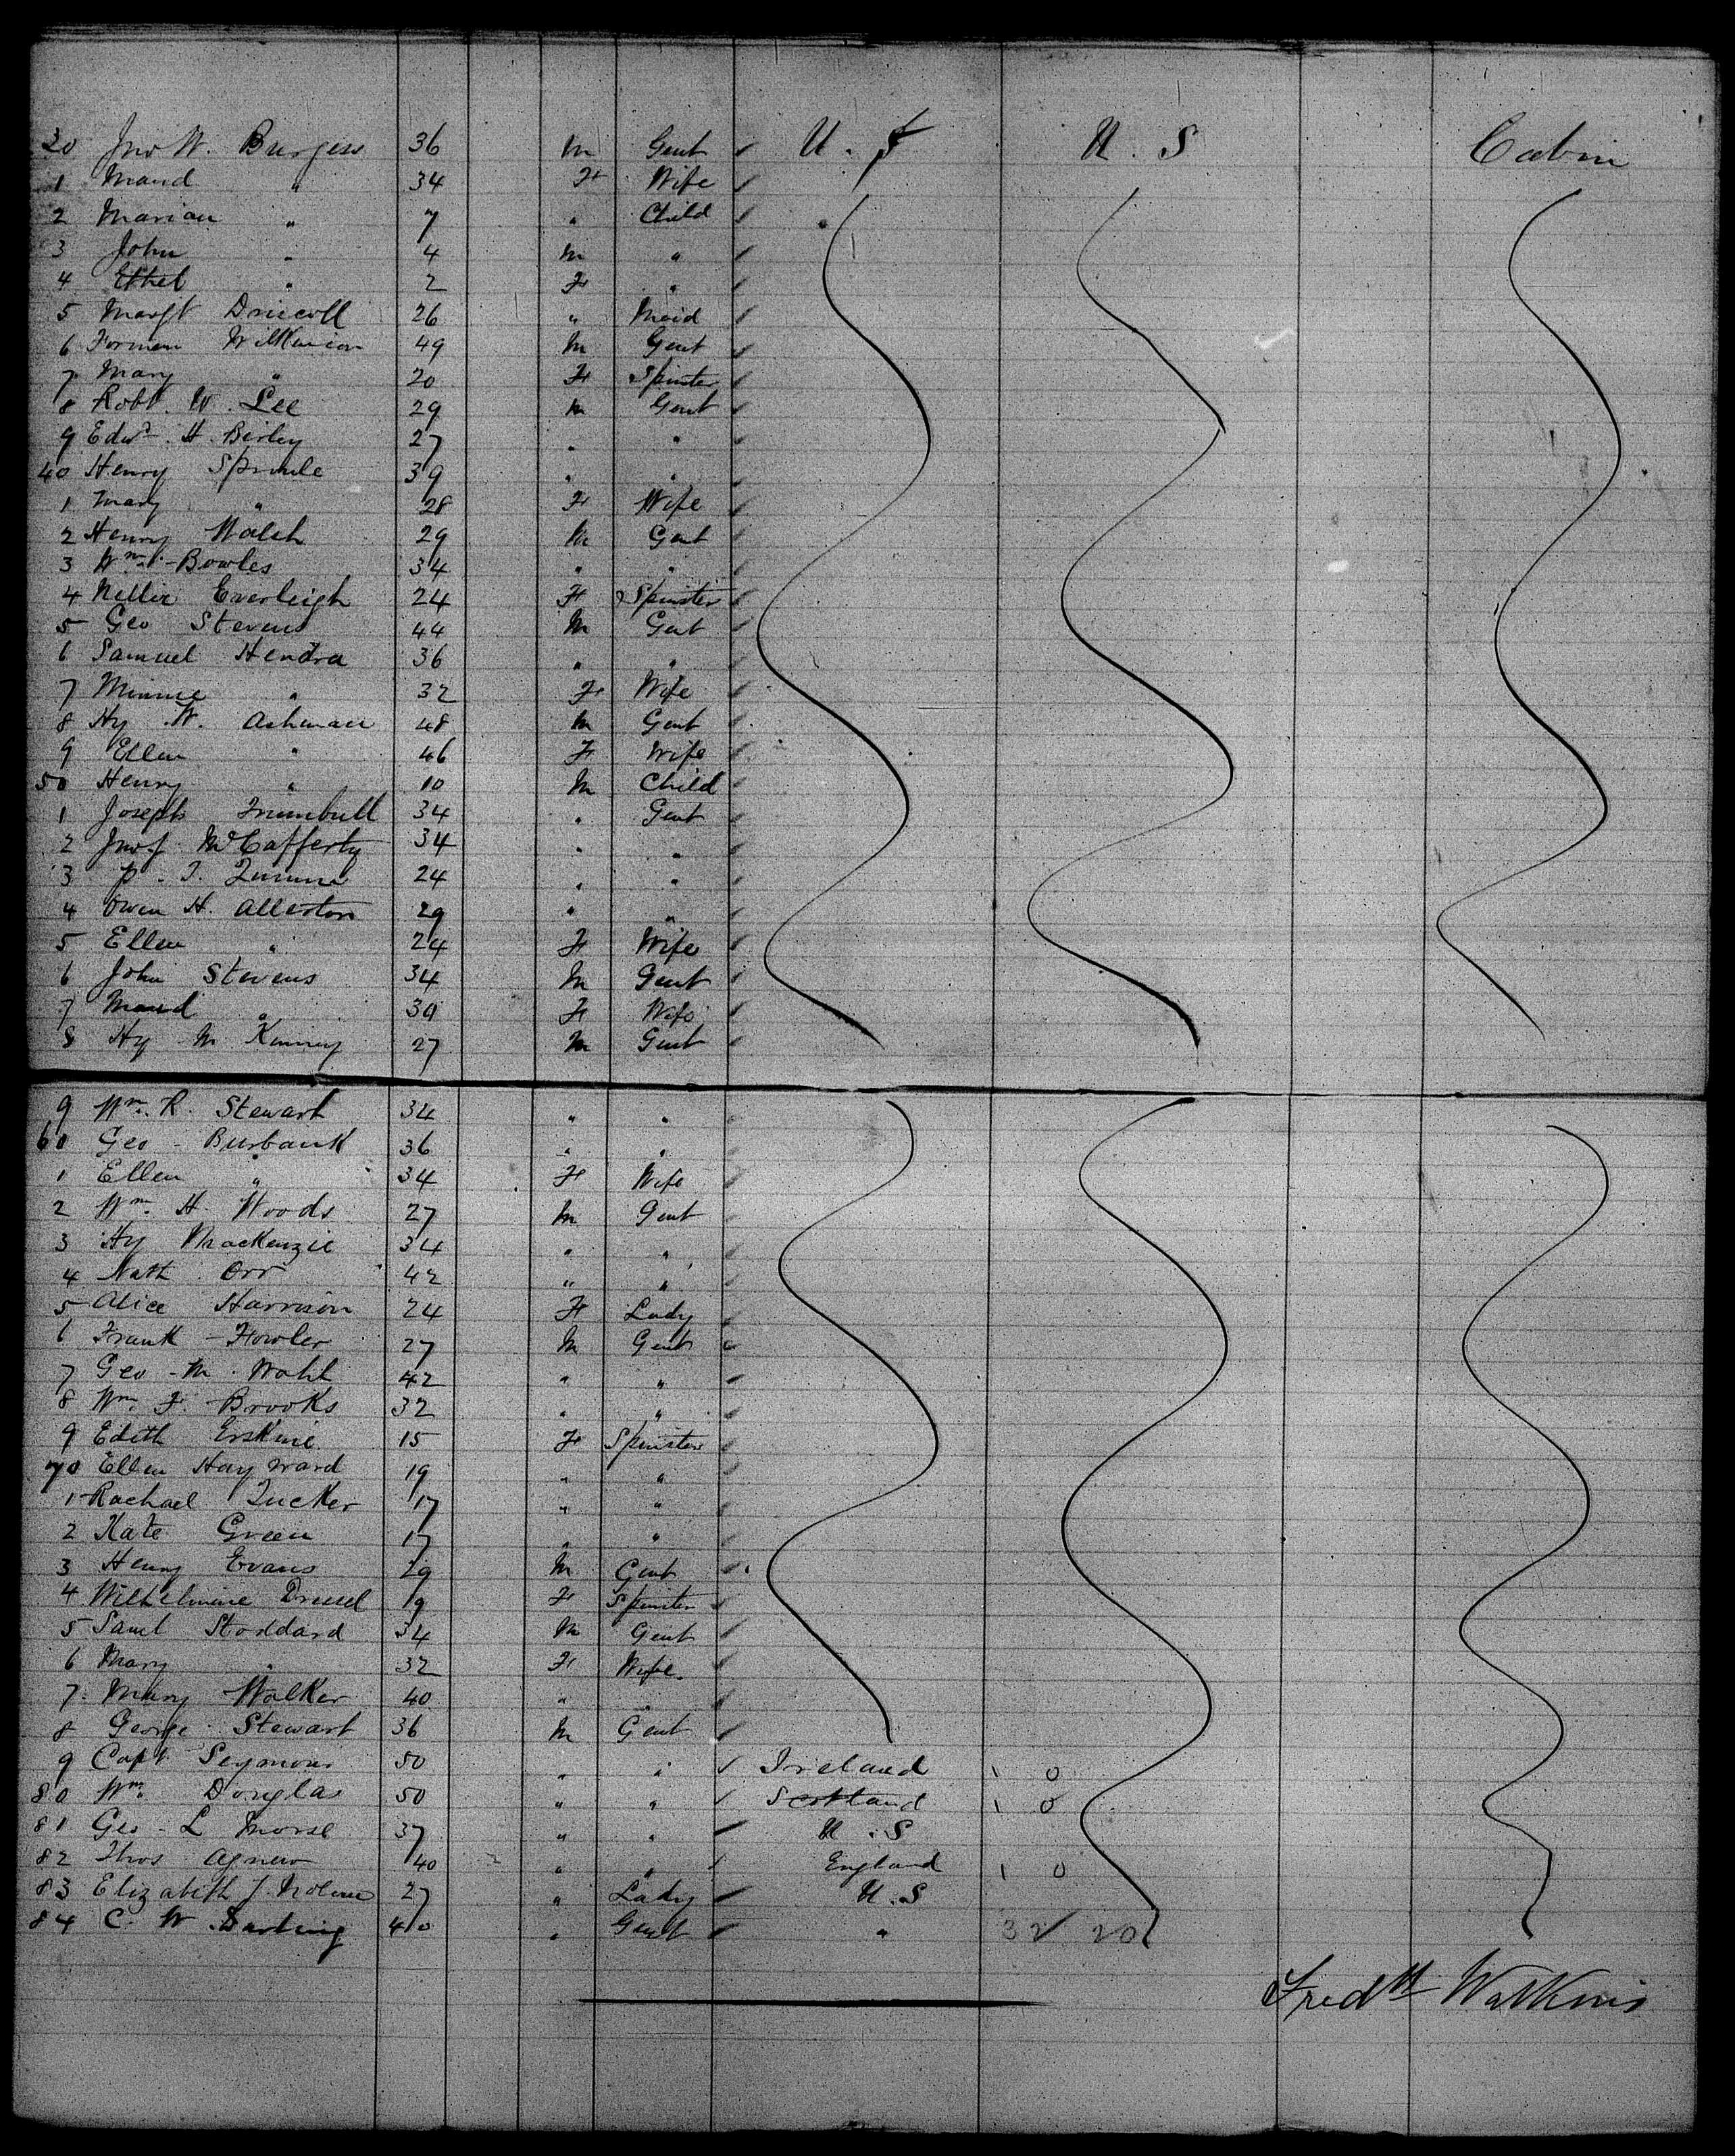 30 Jno W. Burgess 36 M Gent U. S U. S Cabin
1 Maud " 34 F Wife
2 Marian " 7 " Child
3 John " 4 M "
4 Ethel " 2 F "
5 Margt Driscoll 26 " Maid
6 Forman Wilkinson 49 M Gent
7 Mary " 20 F Spinster
8 Robt. W. Lee 29 M Gent
9 Edwd. H. Birley 27 " "
40 Henry Sproule 39 " "
1 Mary " 28 F Wife
2 Henry Walsh 29 M Gent
3 Wm. Bowles 34 " "
4 Nellie Everleigh 24 F Spinster
5 Geo Stevens 44 M Gent
6 Samuel Hendra 36 " "
7 Minnie " 32 F Wife
8 Hy. W. Ashman 48 M Gent
9 Ellen " 46 F Wife
50 Henry " 10 M Child
1 Joseph Trumbull 34 " Gent
2 Jno J McCafferty 34 " "
3 P. T. 24 " "
4 Owen H. Allerton 29 " "
5 Ellen " 24 F Wife
6 John Stevens 34 M Gent
7 Maud " 30 F Wife
8 Hy M Kinney 27 M Gent
9 Wm. R. Stewart 34 " "
60 Geo - Burbank 36 " "
1 Ellen " 34 F Wife
2 Wm. H. Woods 27 M Gent
3 Hy MacKenzie 34 " "
4 Nath. Orr 42 " "
5 Alice Harrison 24 F Lady
6 Frank - Fowler 27 M Gent
7 Geo - M. Wahl 42 " "
8 Wm. F. Brooks 32 " "
9 Edith Erskine 15 F Spinster
70 Ellen Hayward 19 " "
1 Rachael Tucker 17 " "
2 Kate Green 17 " "
3 Henry Evans 29 M Gent
4 Wilhelmine 19 F Spinster
5 Saml Stoddard 34 M Gent
6 Mary " 32 F Wife
7 Mary Walker 40 " "
8 George Stewart 36 M Gent
9 Capt. Seymour 50 " " Ireland 1 0
80 Wm. Douglas 50 " " Scotland 1 0
81 Geo - L Morse 37 " " U. S
82 Thos Agnew 40 " " England 1 0
83 Elizabeth J. 27 " Lady U. S
84 C. W. Darling 40 " Gent " 32 20
Fredk Watkins